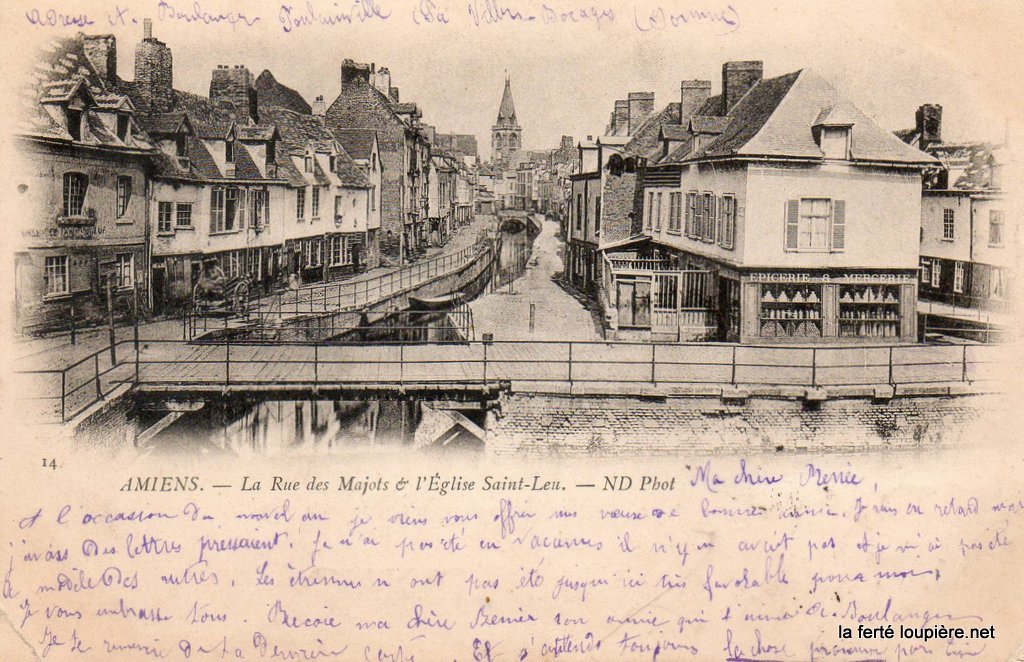 Adresse A. Boulanger Toulainville (Pa Villers-Bocage (Somme)
EPICERIE MERCERIE
14
AMIENS. — La Rue des Majots & l'Église Saint-Leu. — ND Phot
Ma chère Renée,
A l'occasion du nouvel an je viens vous offrir mes vœux de bonne année. Je suis en retard mais
j'avais des lettres pressant. Je n'ai pas été en vacances il n'y en avait pas. et je n'ai pas été
le modèle des autres. Les étrennes n'ont pas été jusqu'ici très favorable pour moi.
Je vous embrasse tous. Reçoie ma chère Renée ton amie qui t'aime A. Boulanger
Je te remercie de la dernière carte. Et j'attends toujours la chose promise
la ferté loupière.net